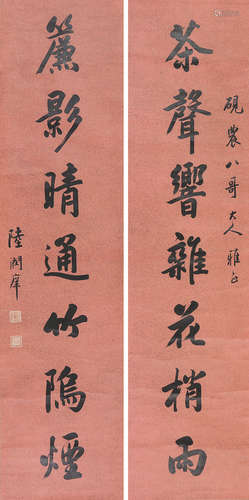 硯農八哥大人雅正
茶聲響雜花梢雨
簾影晴通竹隖煙
陸潤庠